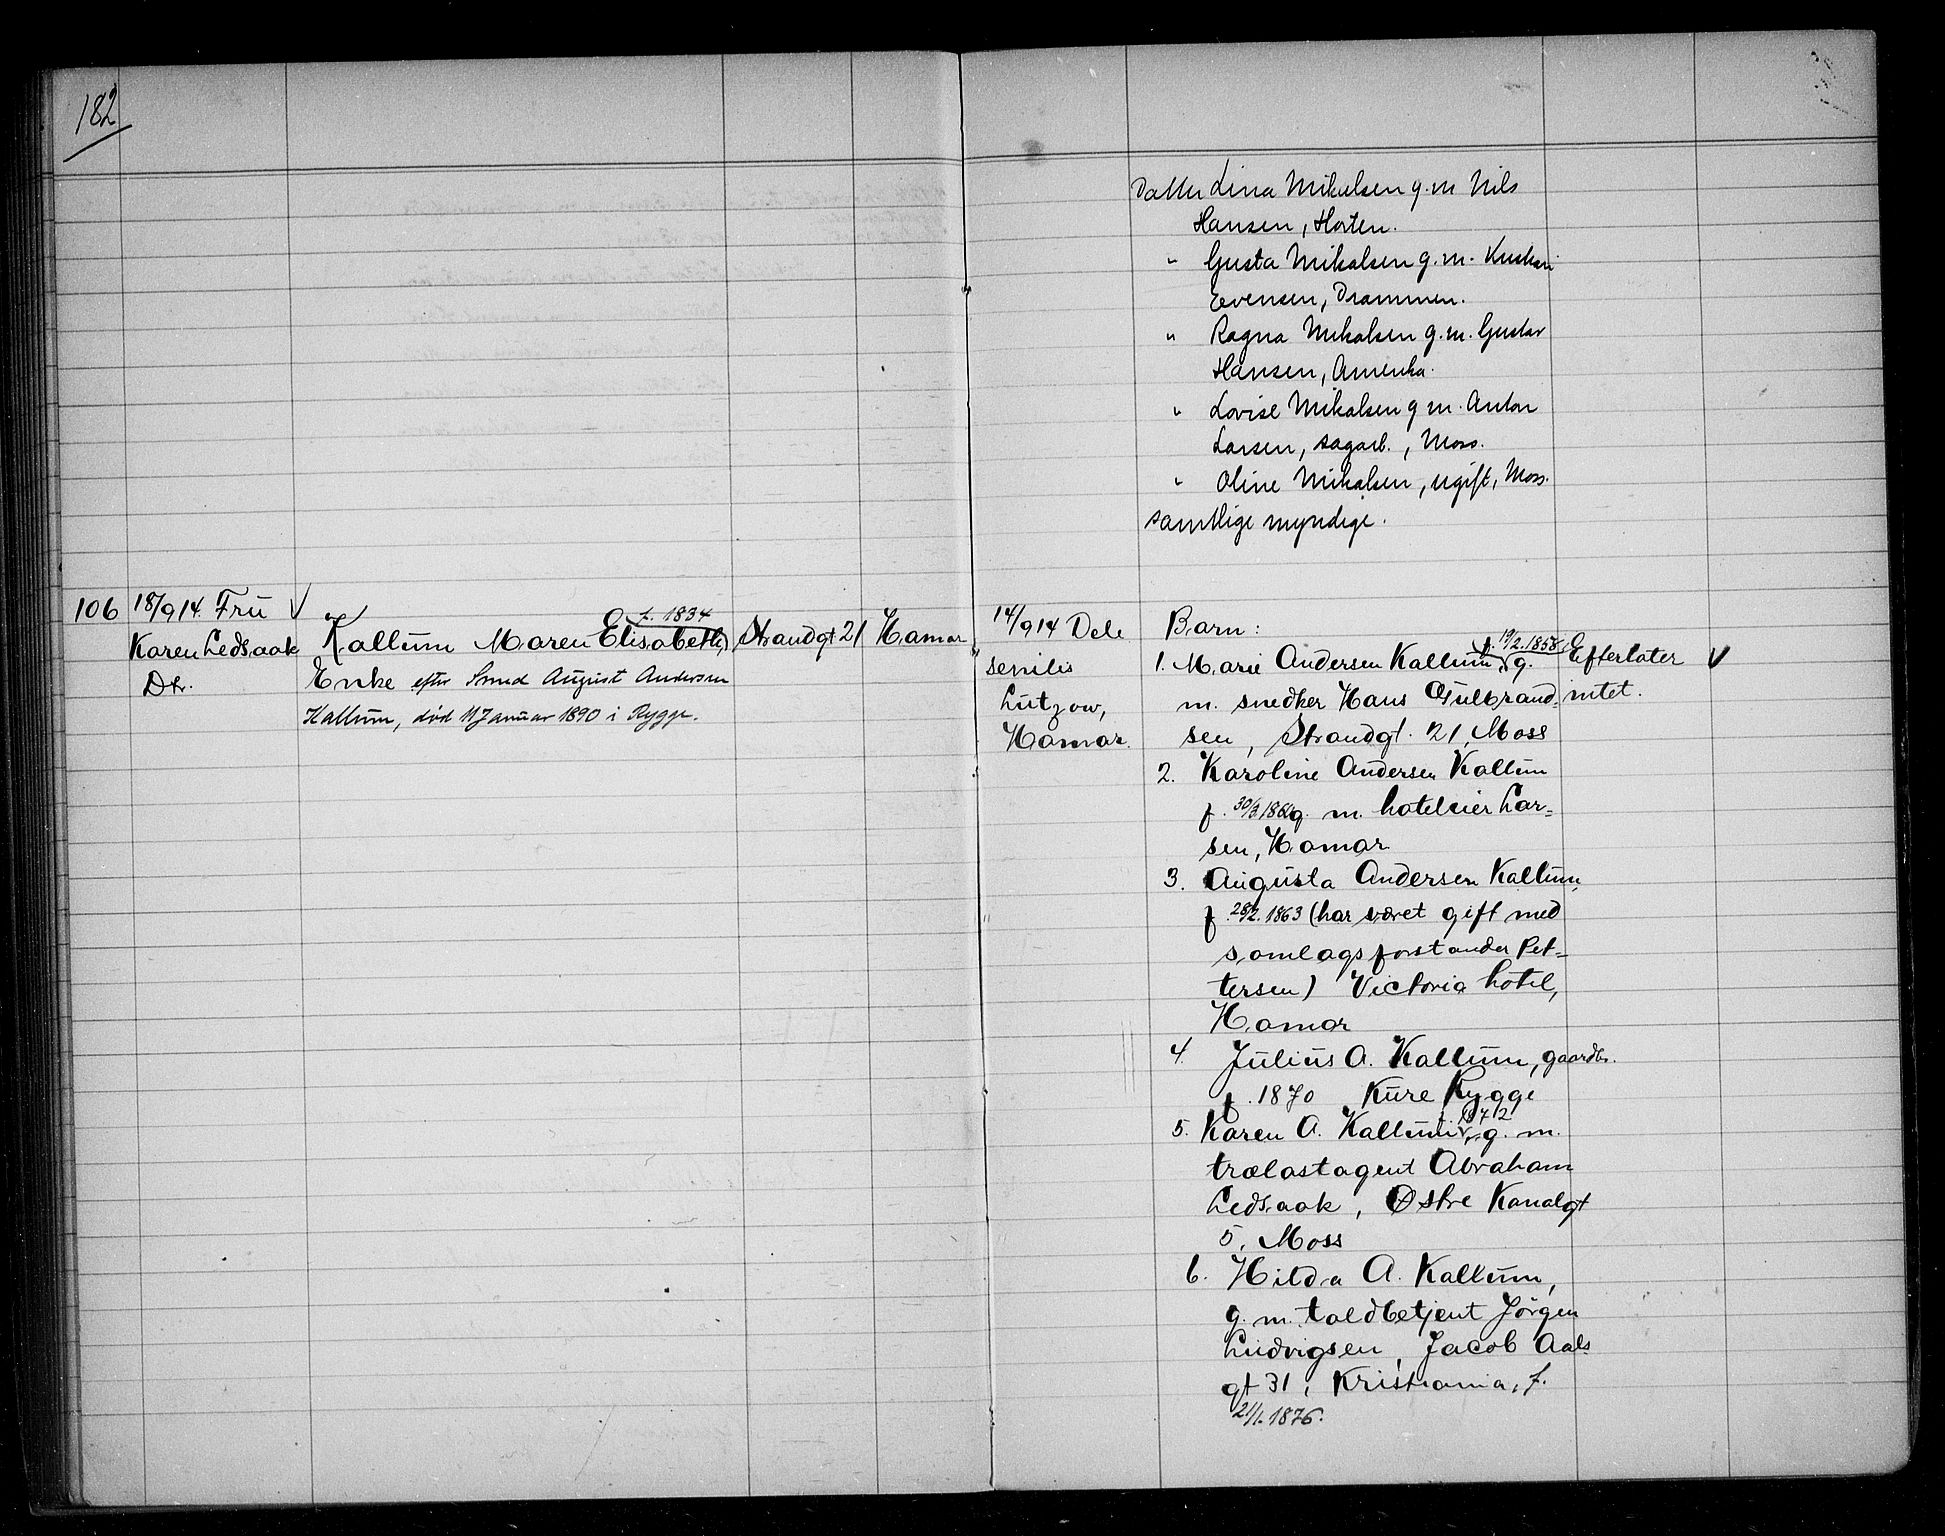 182
Datter Lina Mikalsen g. m Nils
Hansen, Horten.
" Gusta Mikalsen g. m. Kristian
Evensen, Drammen.
" Ragna Mikalsen g. m. Gustav
Hansen, Amerika.
" Lovise Mikalsen g m. Anton
Larsen, sagarb., Moss.
" Oline Mikalsen, ugift, Moss.
samtlige myndige.
106 18/9 14. Fru
Karen Ledsaak
Dtr.
f. 1834
Kallum Maren Elisabeth,
Enke efter Smed August Andersen
Kallum, død 11 Januar 1890 i Rygge.
Strandgt 21
Hamar
14/9 14 Dele
senilis
Lutzow,
Hamar.
Barn:
1. Marie Andersen Kallum, f. 19/2.1858, g.
m. snedker Hans Gulbrand=
sen, Strandgt. 21, Moss
2. Karoline Andersen Kallum
f. 30/3 186 g. m. hoteleier Lar=
sen, Hamar
3. Augusta Andersen Kallum,
f 28/2. 1863 (har været gift med
samlagsforstander Pet=
tersen) Victoria hotel,
Hamar
4. Julius A. Kallum, gaardbr.
f. 1870 Kure Rygge
5. Karen A. Kallum, 1872, g. m.
trælastagent Abraham
Ledsaak, Østre Kanalgt
5, Moss
6. Hilda A. Kallum,
g. m. toldbetjent Jörgen
Ludvigsen, Jacob Aals
gt 31, Kristiania, f.
21/1. 1876.
Efterlater
intet.